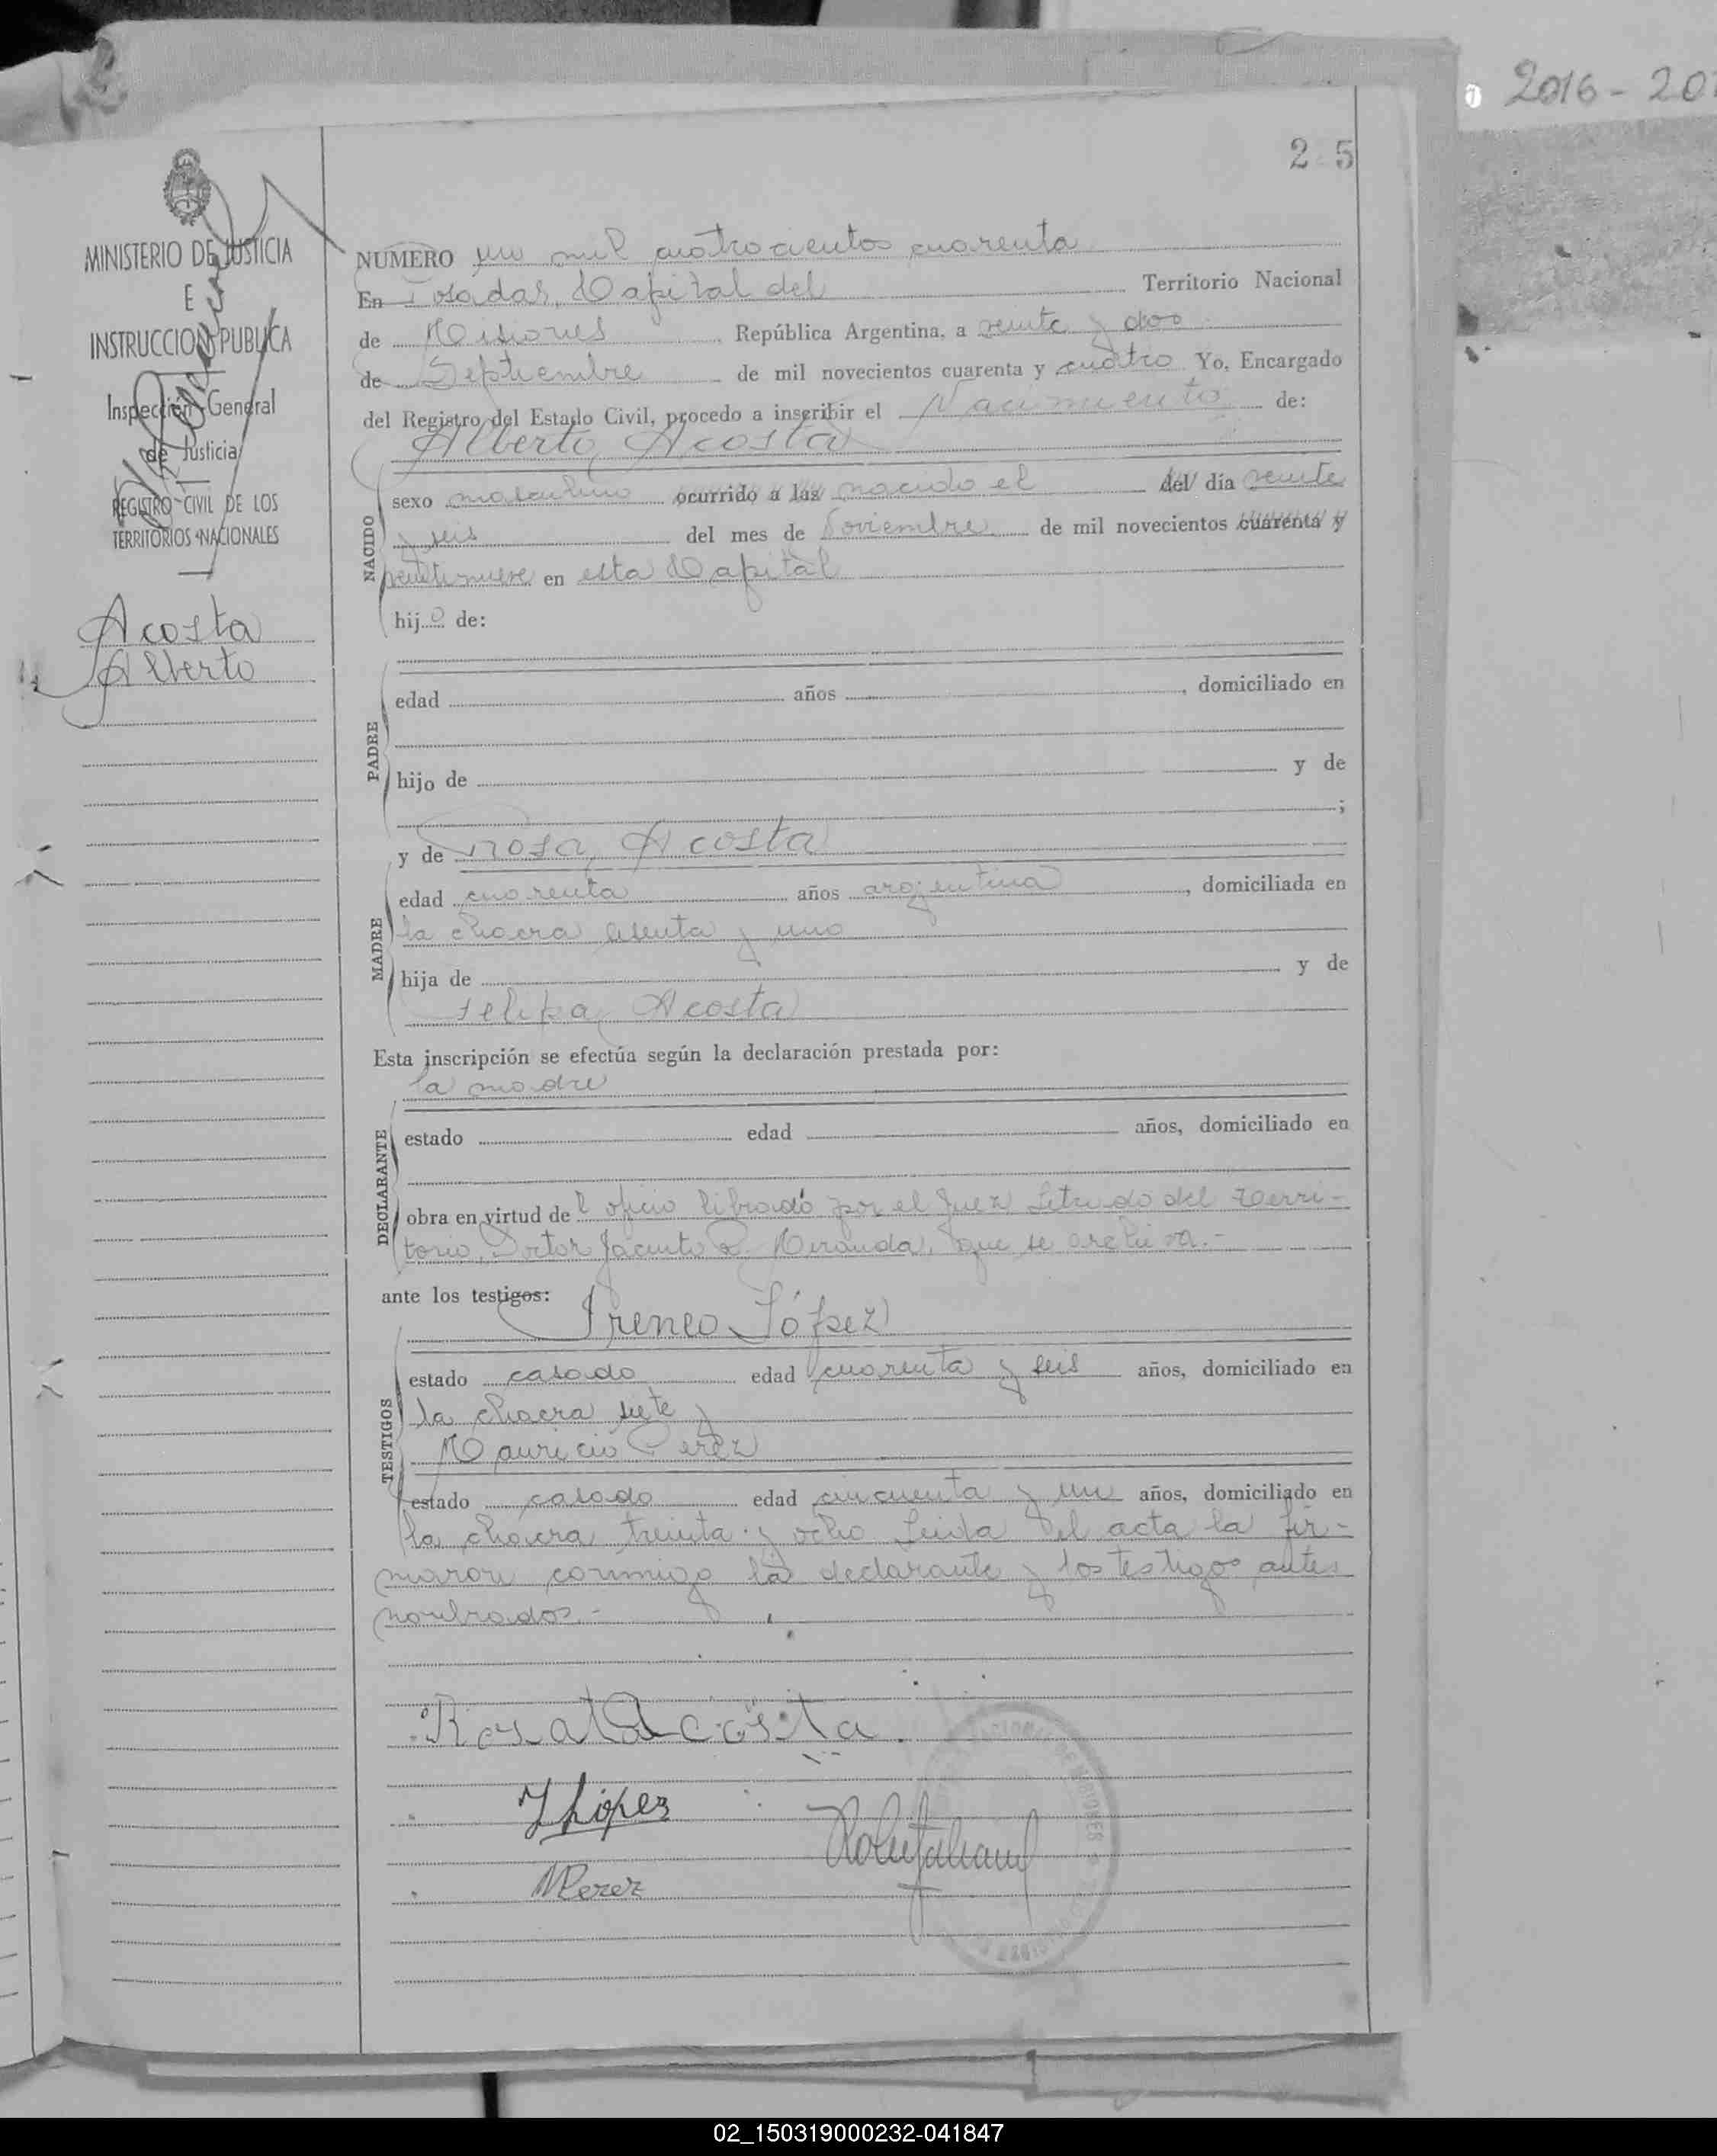 2016-20
2 5
MINISTERIO DE JUSTICIA
E
INSTRUCCION PUBLICA
Inspección General
de Justicia
REGISTRO CIVIL DE LOS
TERRITORIOS NACIONALES
Acosta
Alberto
NUMERO un mil cuatrocientos cuarenta
En Posadas, Capital del Territorio Nacional
de Misiones República Argentina, a veinte y dos
de Septiembre de mil novecientos cuarenta y cuatro Yo, Encargado
del Registro del Estado Civil, procedo a inscribir el Nacimiento de:
Alberto Acosta
NACIDO
sexo masculino ocurrido a las nacido el del día veinte
y seis del mes de Noviembre de mil novecientos cuarenta y
veintinueve en esta Capital
hijo de:
PADRE
edad años , domiciliado en
hijo de y de
;
MADRE
y de Rosa Acosta
edad cuarenta años argentina , domiciliada en
la chacra sesenta y uno
hija de y de
Felipa Acosta
Esta inscripción se efectúa según la declaración prestada por:
la madre
DECLARANTE
estado edad años, domiciliado en
obra en virtud del oficio librado por el Juez Letrado del Terri-
torio, Doctor Jacinto R. Miranda, que se archiva.-
ante los testigos:
Ireneo López
TESTIGOS
estado casado edad cuarenta y seis años, domiciliado en
la chacra siete y
Mauricio Perez
estado casado edad cincuenta y un años, domiciliado en
la chacra treinta y ocho Leida el acta la fir-
maron conmigo la declarante y los testigos antes
nombrados.-
Rosa Acosta
I López
MPerez
02_150319000232-041847